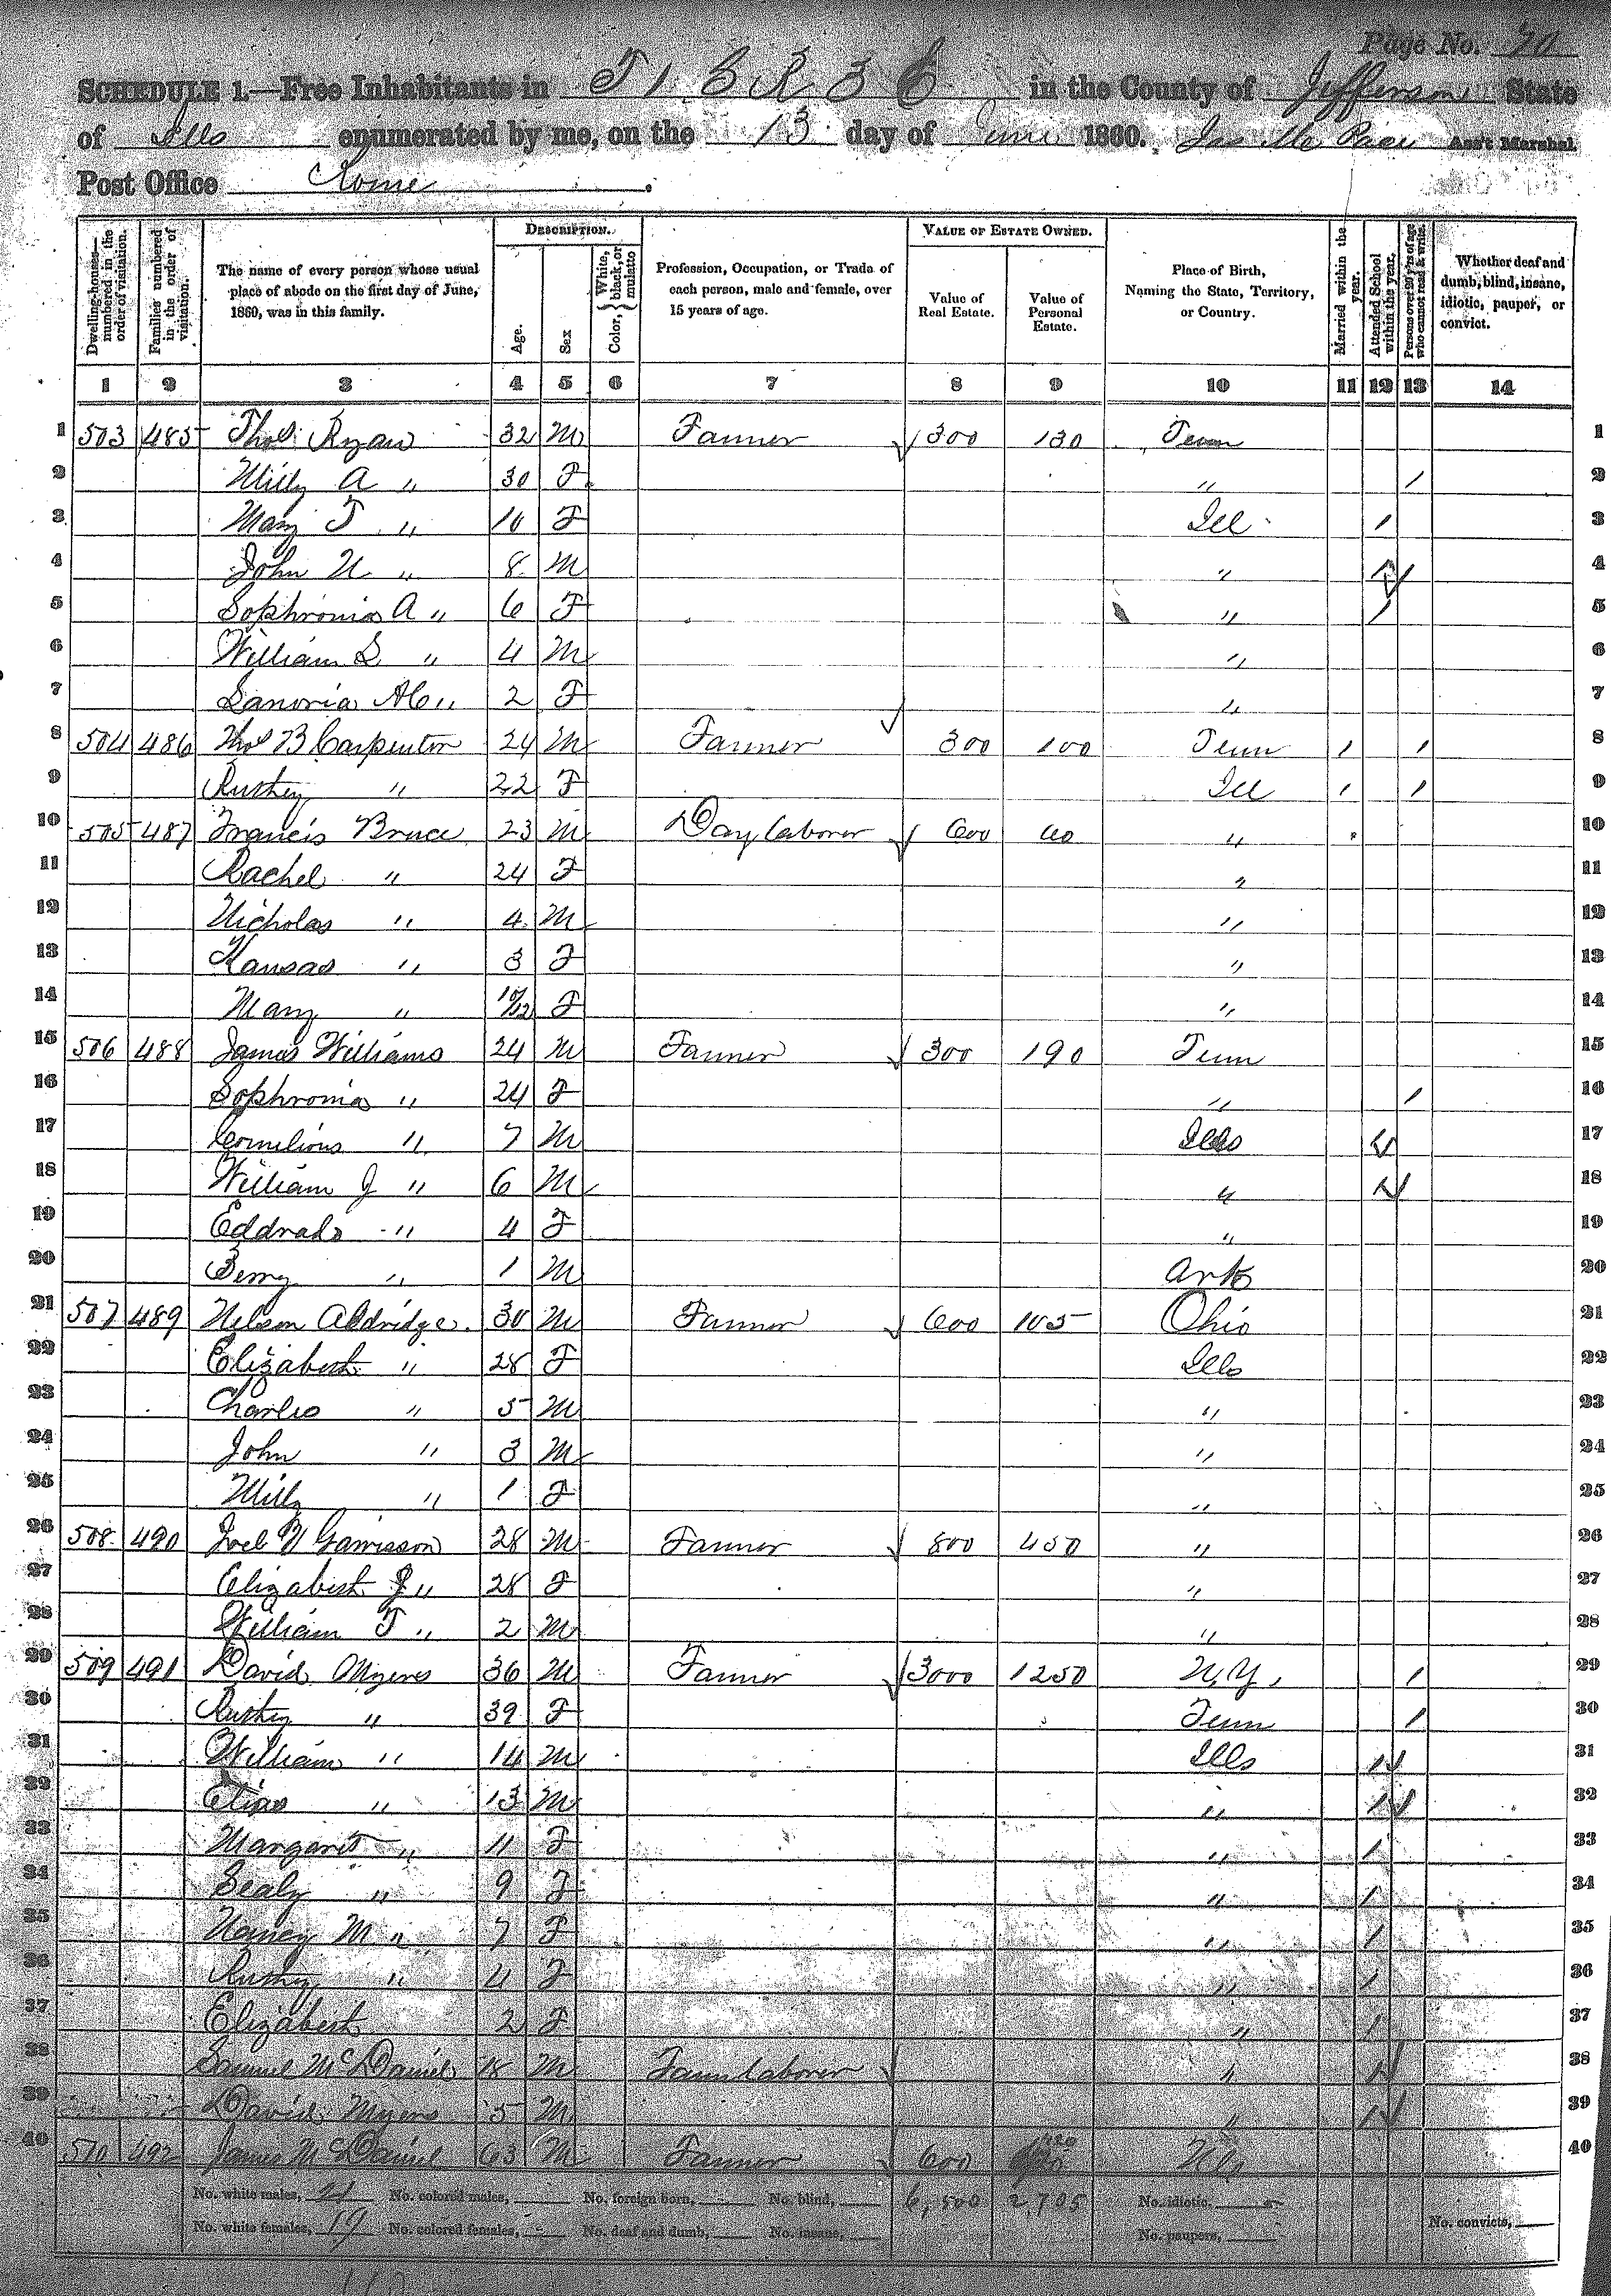 Page No. 70
SCHEDULE 1.—Free Inhabitants in T 1 S R 3 E in the County of Jefferson State
of Ills enumerated by me, on the 13 day of June 1860. Ass't Marshal.
Post Office Rome.
DESCRIPTION. VALUE OF ESTATE OWNED.
Dwelling-houses—numbered in the order of visitation. Families numbered in the order of visitation. The name of every person whose usual place of abode on the first day of June, 1860, was in this family. Age. Sex Color, { White, black, or mulatto Profession, Occupation, or Trade of each person, male and female, over 15 years of age. Value of Real Estate. Value of Personal Estate. Place of Birth, Naming the State, Territory, or Country. Married within the year. Attended School within the year. Persons over 20 y'rs of age who cannot read & write. Whether deaf and dumb, blind, insane, idiotic, pauper, or convict.
1 2 3 4 5 6 7 8 9 10 11 12 13 14
1 503 485 Thos Ryan 32 M Farmer 300 130 Tenn 1
2 Milly A " 30 F " / 2
3 Mary J " 10 F Ill / 3
4 John N " 8 M " / 4
5 Sophronia A " 6 F " / 5
6 William S " 4 M " 6
7 2 F " 7
8 504 486 Thos B Carpenter 24 M Farmer 300 100 Tenn / / 8
9 " 22 F Ill / / 9
10 505 487 Francis Bruce 23 M Day laborer 600 60 " 10
11 Rachel " 24 F " 11
12 Nicholas " 4 M " 12
13 Kansas " 3 F " 13
14 Mary " 10/12 F " 14
15 506 488 James Williams 24 M Farmer 300 190 Tenn 15
16 Sophronia " 24 F " / 16
17 Cornelious " 7 M Ills / 17
18 William J " 6 M " / 18
19 " 4 F " 19
20 Berry " 1 M Ark 20
21 507 489 Nelson Aldridge 30 M Farmer 600 105 Ohio 21
22 Elizabeth " 28 F Ills 22
23 Charles " 5 M " 23
24 John " 3 M " 24
25 Milly " 1 F " 25
26 508 490 Joel Garrisson 28 M Farmer 800 450 " 26
27 Elizabeth J " 28 F " 27
28 William T " 2 M " 28
29 509 491 David Myers 36 M Farmer 3000 1250 N.Y. / 29
30 " 39 F Tenn / 30
31 William " 14 M Ills / 31
32 Elias " 13 M " / 32
33 Margaret " 11 F " / 33
34 Sealy " 9 F " / 34
35 Nancy M " 7 F " / 35
36 " 4 F " / 36
37 Elizabeth 2 F " / 37
38 Samuel McDaniel 18 M Farm laborer " / 38
39 David Myers 5 M " / 39
40 510 492 James McDaniel 63 M Farmer 600 420 40
No. white males, 21 No. colored males, No. foreign born, No. blind, 6,800 2,705 No. idiotic,
No. white females, 19 No. colored females, No. deaf and dumb, No. insane, No. paupers, No. convicts,